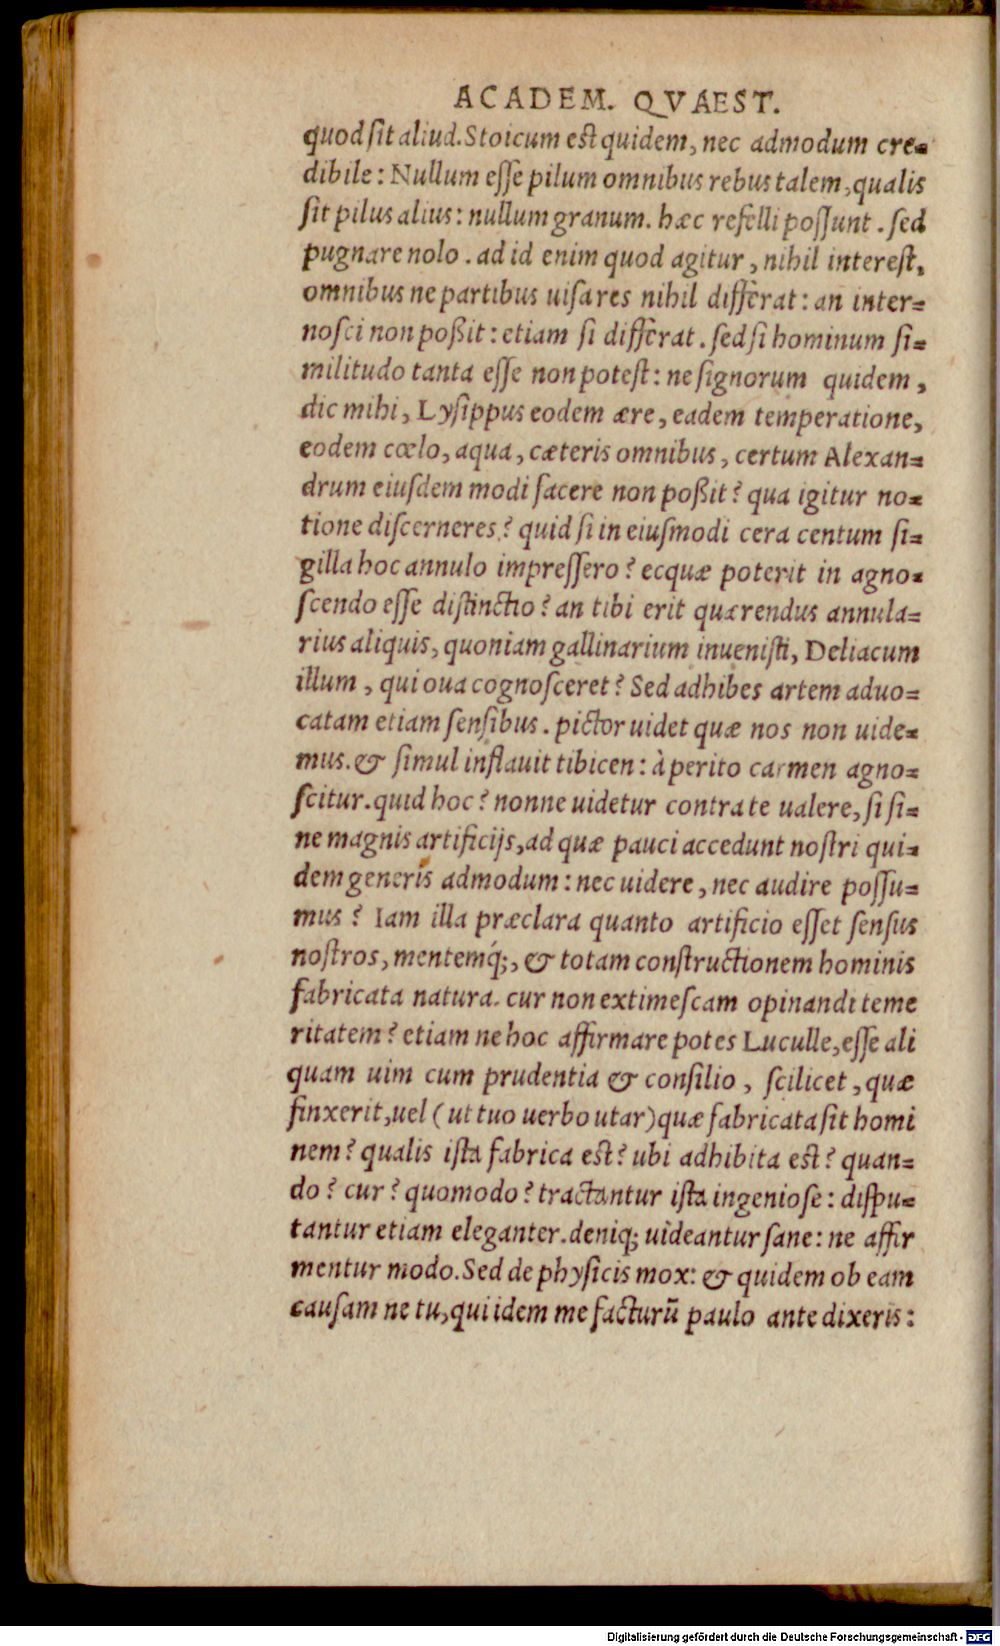 ACADEM. QVAEST.
quod ſit aliud. Stoicum est quidem, nec admodum cre=
dibile: Nullum eſſe pilum omnibus rebus talem, qualis
ſit pilus alius: nullum granum. hæc refelli poſſunt. ſed
pugnare nolo. ad id enim quod agitur, nihil intereſt,
omnibus ne partibus uiſa res nihil differat: an inter=
noſci non poßit: etiam ſi differat. ſed ſi hominum ſi=
militudo tanta eſſe non poteſt: ne ſignorum quidem,
dic mihi, Lyſippus eodem ære, eadem temperatione,
eodem cœlo, aqua, cæteris omnibus, certum Alexan=
drum eiuſdem modi facere non poßit? qua igitur no=
tione diſcerneres? quid ſi in eiuſmodi cera centum ſi=
gilla hoc annulo impreſſero? ecquæ poterit in agno=
ſcendo eſſe diſtinctio? an tibi erit quærendus annula=
rius aliquis, quoniam gallinarium inueniſti, Deliacum
illum, qui oua cognoſceret? Sed adhibes artem aduo=
catam etiam ſenſibus. pictor uidet quæ nos non uide=
mus. & ſimul inflauit tibicen: à perito carmen agno=
ſcitur. quid hoc? nonne uidetur contra te ualere, ſi ſi=
ne magnis artificijs, ad quæ pauci accedunt noſtri qui=
dem generis admodum: nec uidere, nec audire poſſu=
mus? Iam illa præclara quanto artificio eſſet ſenſus
noſtros, mentemq́;, & totam conſtructionem hominis
fabricata natura. cur non extimeſcam opinandi teme
ritatem? etiam ne hoc affirmare potes Luculle, eſſe ali
quam uim cum prudentia & conſilio, ſcilicet, quæ
finxerit, uel (ut tuo uerbo utar) quæ fabricata ſit homi
nem? qualis iſta fabrica est? ubi adhibita est? quan=
do? cur? quomodo? tractantur iſta ingenioſe: diſpu=
tantur etiam eleganter. deniq; uideantur ſane: ne affir
mentur modo. Sed de phyſicis mox: & quidem ob eam
cauſam ne tu, qui idem me facturũ paulo ante dixeris:
Digitalisierung gefördert durch die Deutsche Forschungsgemeinschaft - DFG